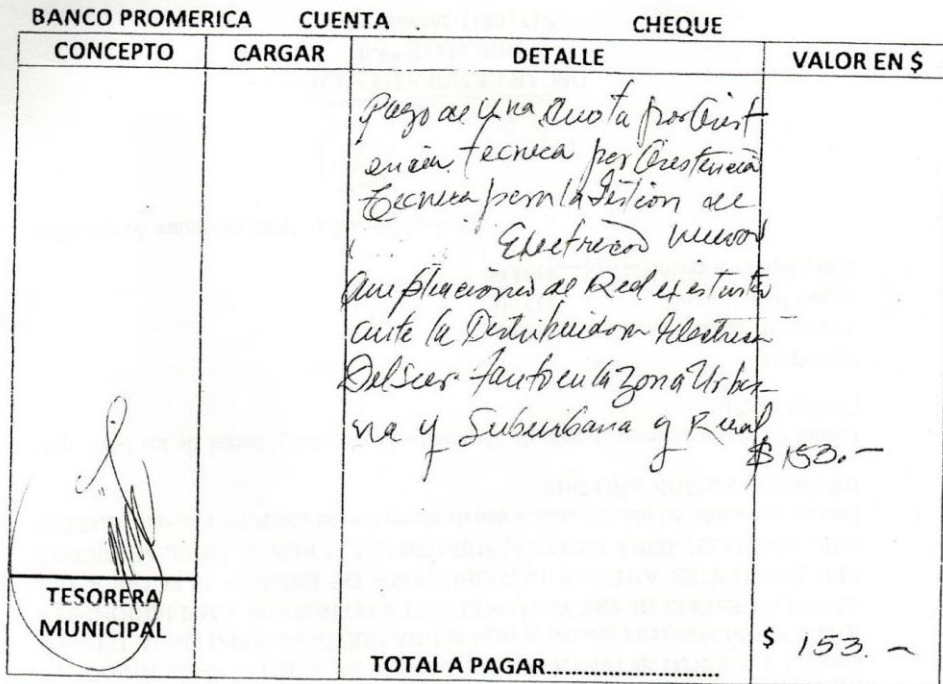 BANCO PROMERICA CUENTA CHEQUE
CONCEPTO CARGAR DETALLE VALOR EN $
Pago de una Cuota por Asist
encia tecnica por Asistencia
Tecnica para la Gestion de
Electrecos nuevos
Ampliaciones de Red existentes
ante la Distribuidora Electrica
Delsur tanto en la Zona Urba
na y Suburbana y Rural
$ 153.-
TESORERA
MUNICIPAL
TOTAL A PAGAR.............................. $ 153.-